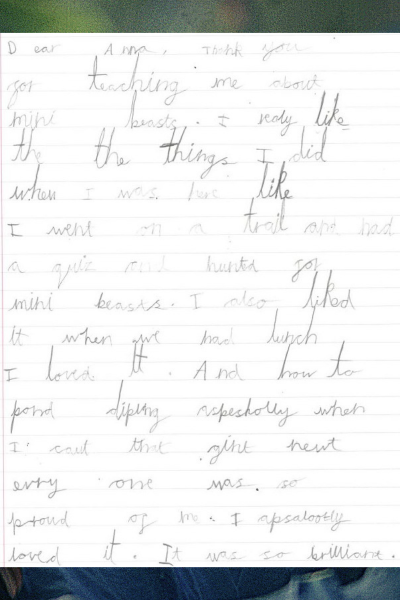 Dear Anna, Thank you
for teaching me about
mini beasts. I realy like
the the things I did
when I was here like
I went on a trail and had
a quiz and hunted for
mini beasts. I also liked
it when we had lunch
I loved it. And how to
pond diping aspesholly when
I caut that gint newt
evry one was. so
proud of me. I apsalootly
loved it. It was so brilliant.